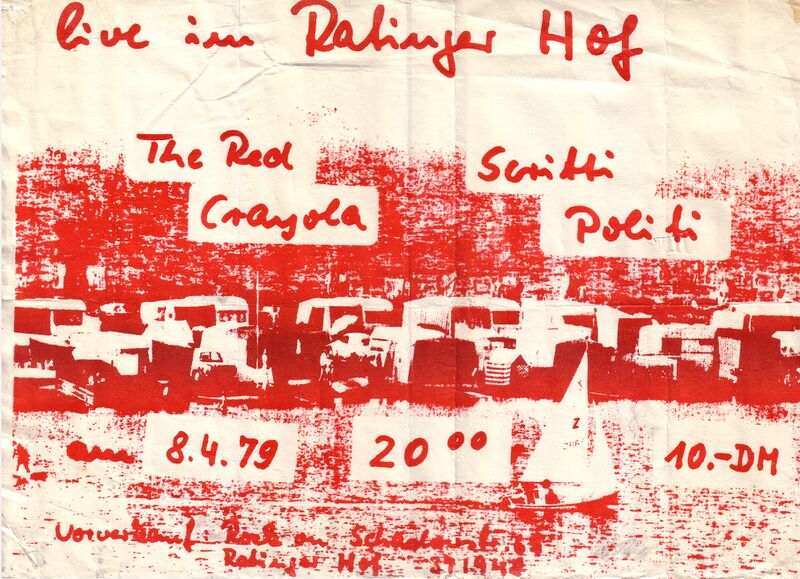 live im Ratinger Hof
The Red
Crayola
Scritti
Politi
am 8.4.79 20 00 10.-DM
Vorverkauf: Rock on Schadowstr.
Ratinger Hof